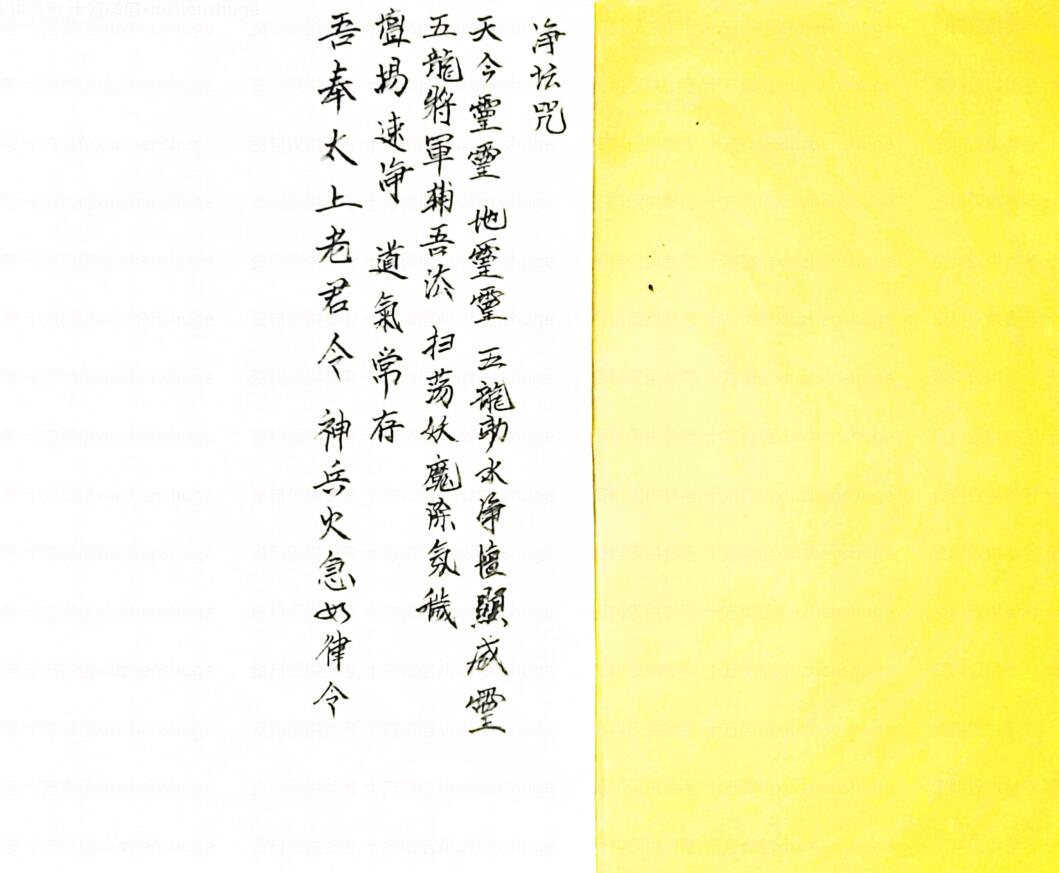 净坛咒
天今靈靈 地靈靈 五龍助水净壇顯威靈
五龍將軍輔吾法 扫荡妖魔除氛秽
壇場速净 道氣常存
吾奉太上老君令 神兵火急如律令
资料仅供参考 十方微信xiuzhenshuge